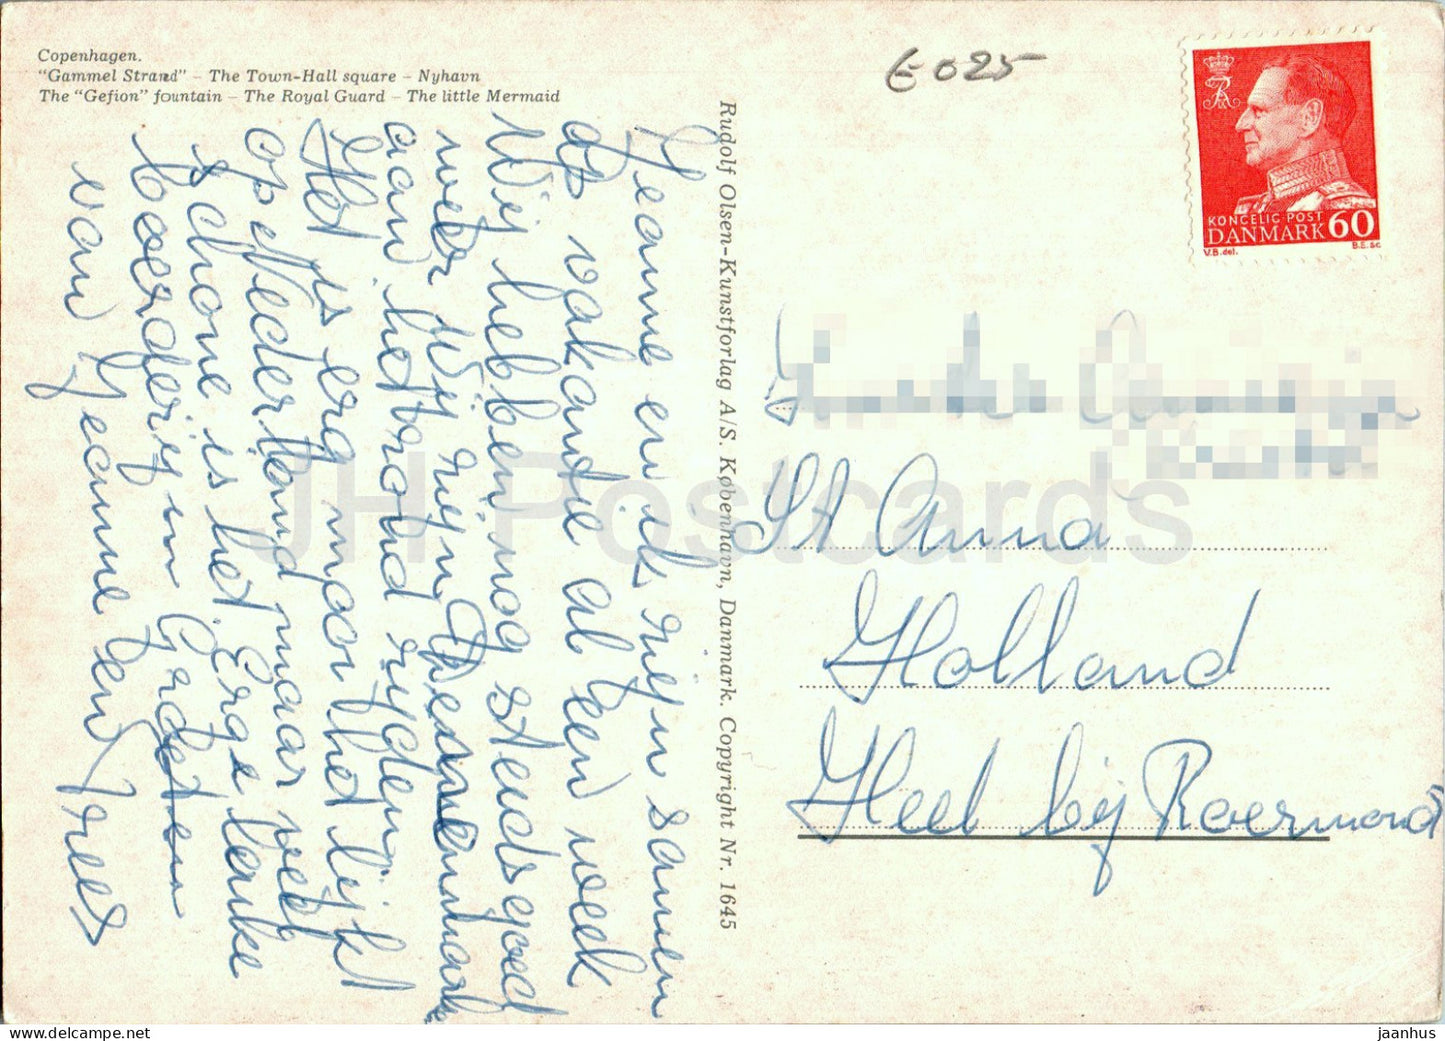 Copenhagen.
"Gammel Strand" – The Town-Hall square – Nyhavn
The "Gefion" fountain – The Royal Guard – The little Mermaid
E 025
KONGELIG POST
DANMARK 60
V.B. del. B.E. sc
Rudolf Olsen-Kunstforlag A/S. København, Danmark. Copyright Nr. 1645
Jeanne en ik zijn samen
op vakantie al een week
Wij hebben nog steeds goed
weer Wij zijn Denemark
aan het rond rijden
Het is erg mooi het lijkt
op Nederland maar veel
schone is het Erge leuke
boerderij in
van Jeanne en
St Anna
Holland
Heel bij Roermond
JH Postcards
jaanhus